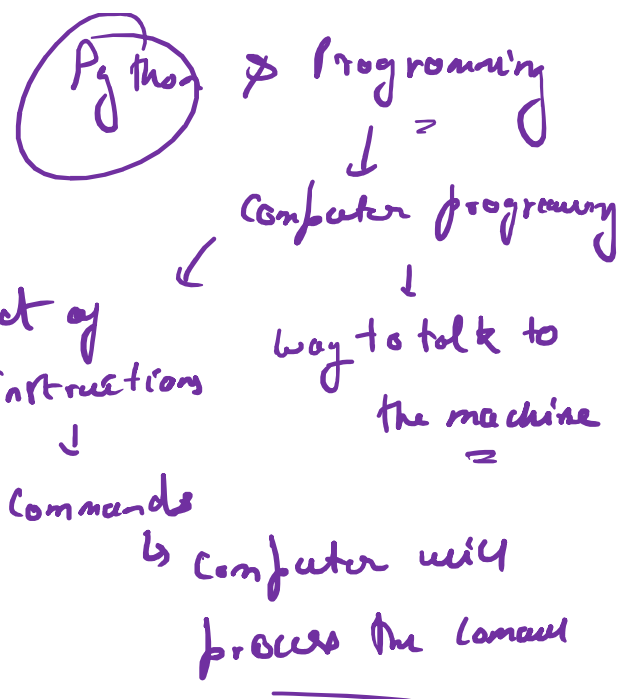 Python * Programming
Computer programming
set of
instructions
way to talk to
the machine
Commands
Computer will
process the command